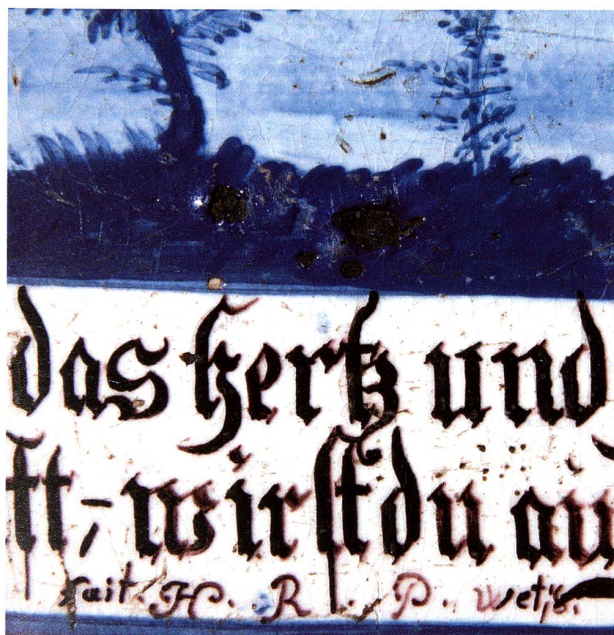 das hertz und
ſt,- wirſt du au
fait. H. R. P. Wet,s.